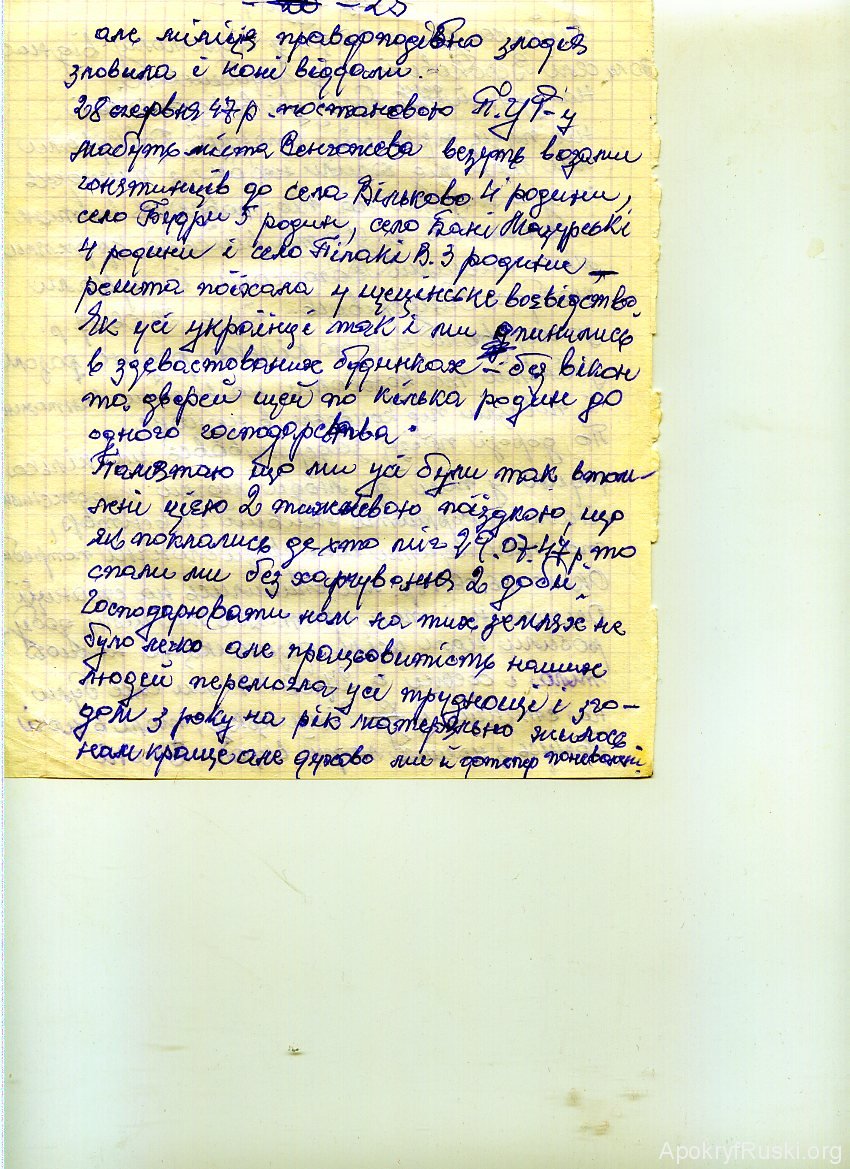 - 25
але міліція правдоподібно злодіїв
зловила і коні віддали.-
28 червня 47 р. постановою П.У.Р-у
мабуть міста Венгожева везуть возами
гонятинців до села Вільково 4 родини,
село Будри 5 родин, село Бані Мазурські
4 родини і село Пілакі В. 3 родини –
решта поїхала у щецінське возвідство
Як усі українці так і ми опинились
в здевастованих будинках – без вікон
та дверей щей по кілька родин до
одного господарства.
Памятаю що ми усі були так втом-
лені цією 2 тижневою поїздкою, що
як поклались де хто міг 29.07.47 р. то
спали ми без харчування 2 доби.
Господарювати нам на тих землях не
було легко але працьовитість наших
людей перемогла усі труднощі і зго-
дом з року на рік матеріально жилось
нам краще але духово ми й дотепер поневолені
ApokryfRuski.org